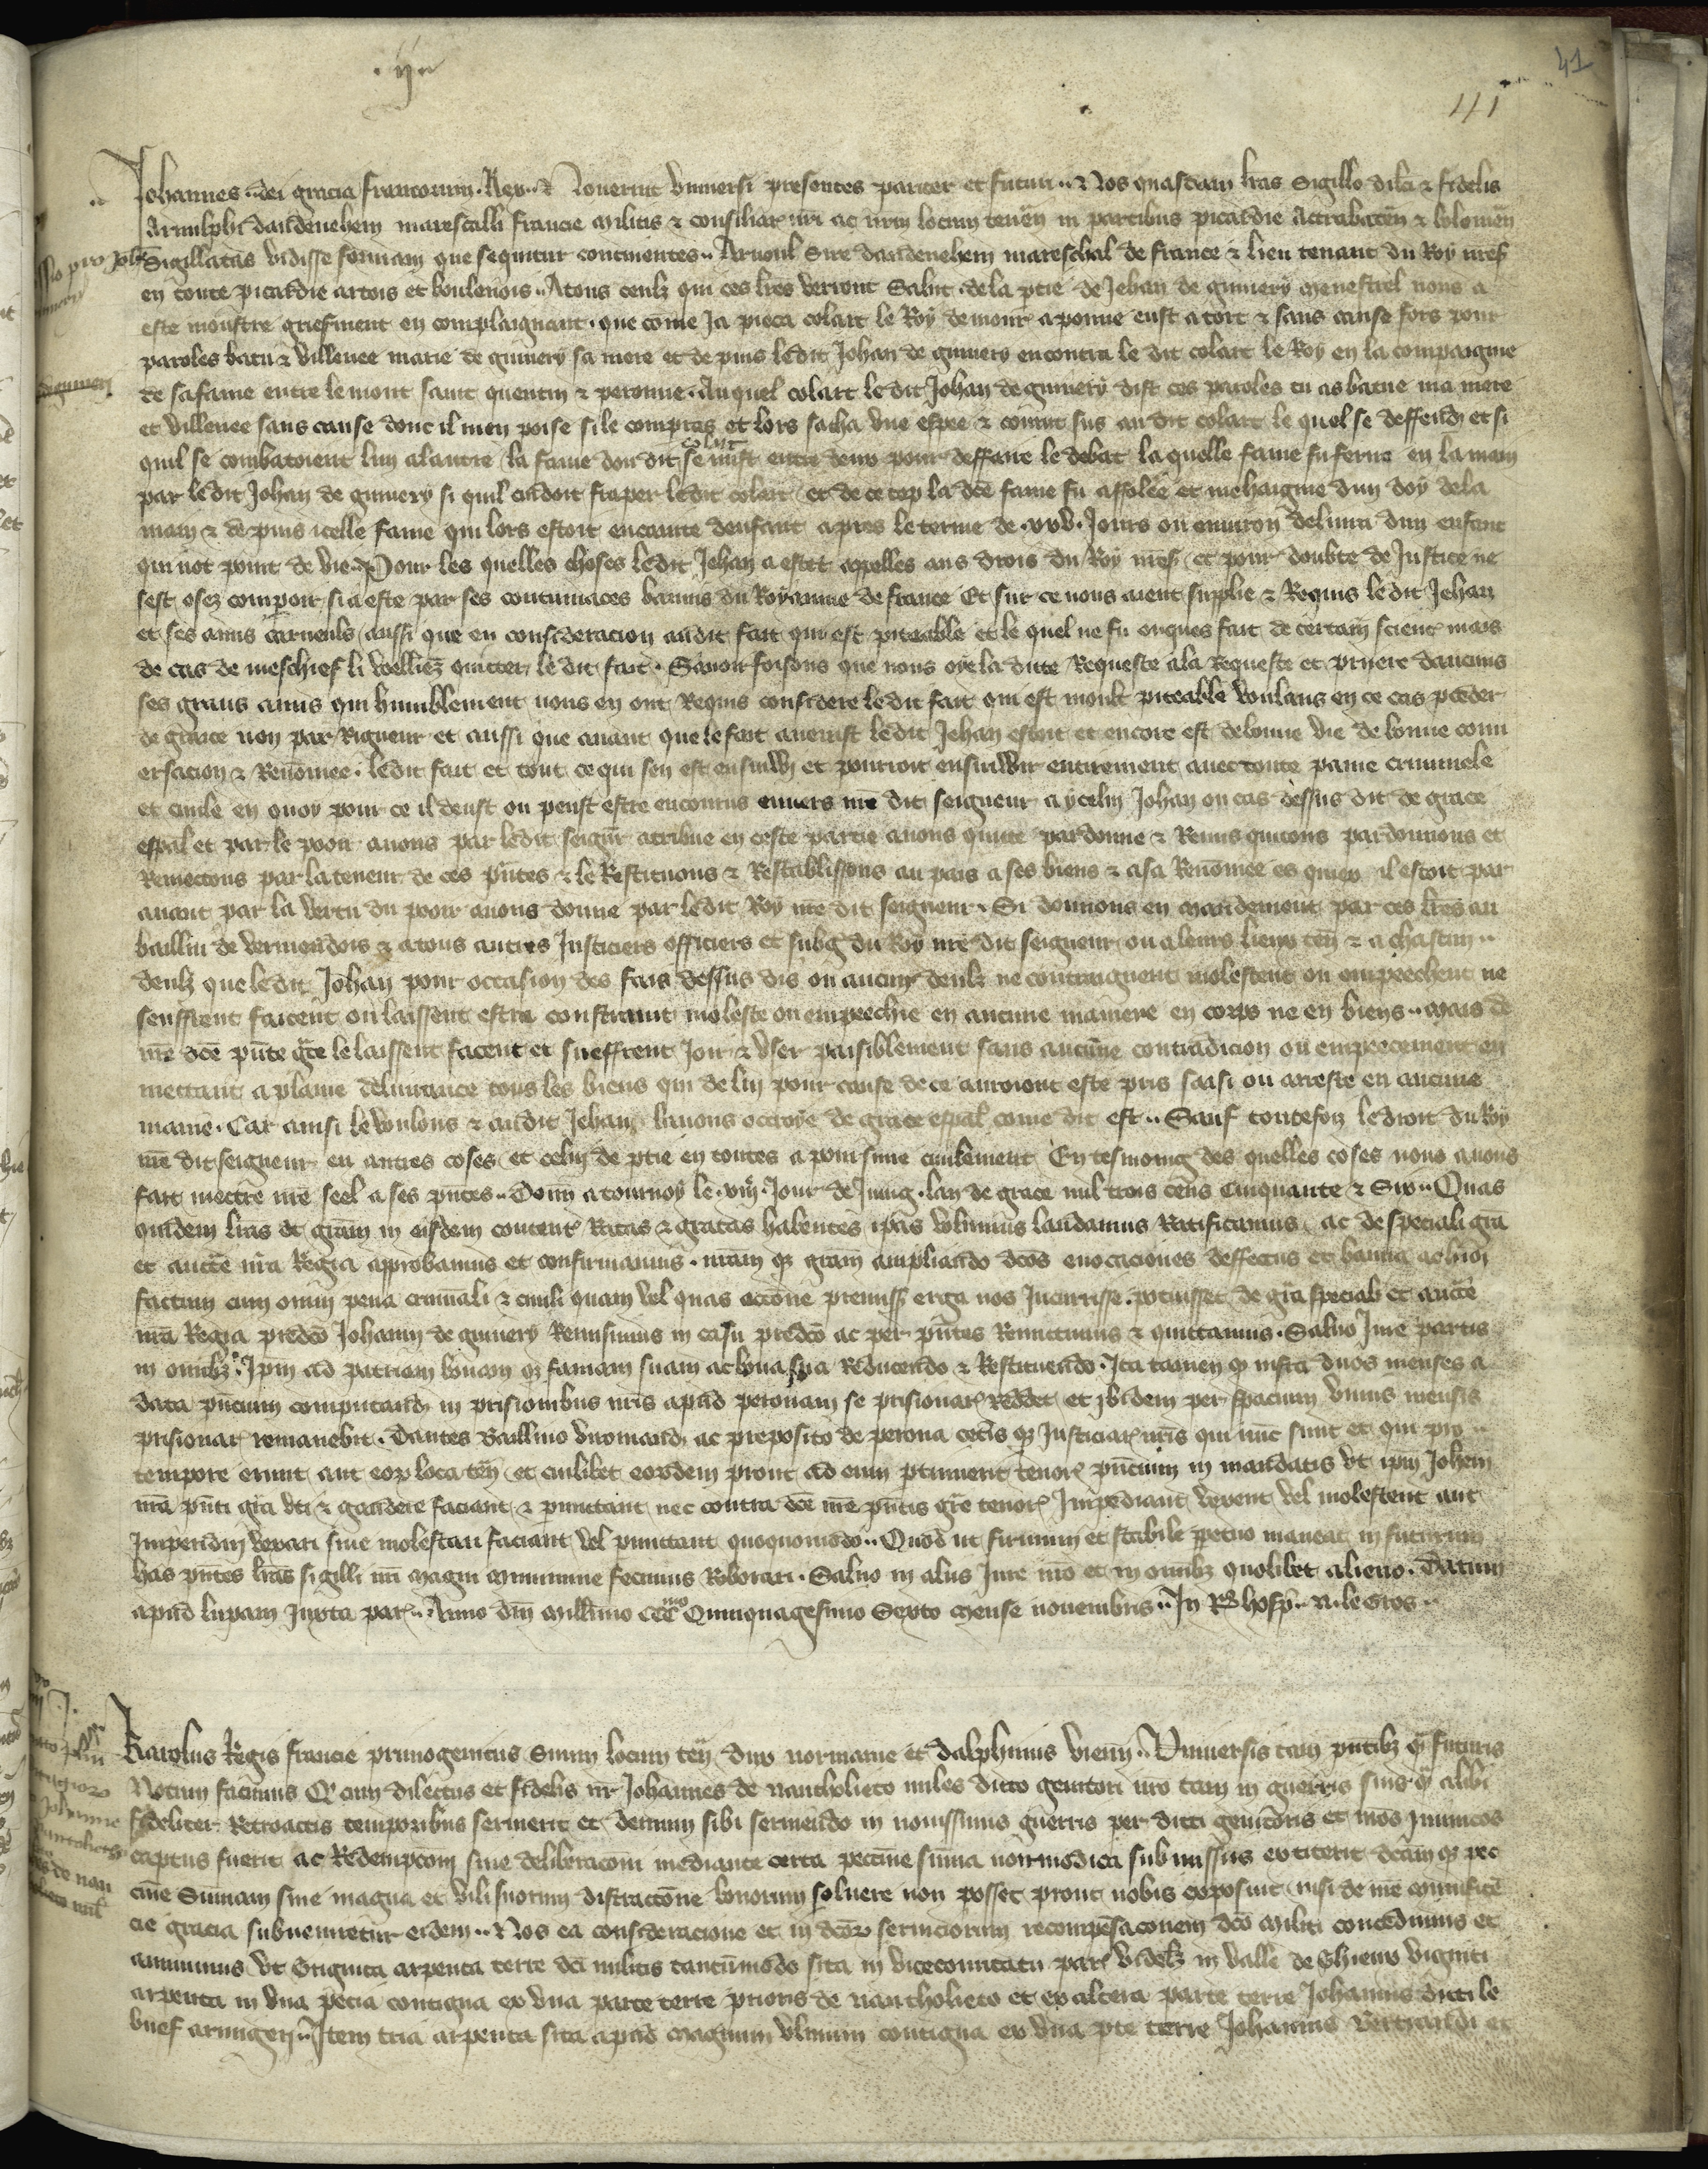 .ij.
41
41
Johannes dei gracia francorum Rex Noverint universi presentes pariter et futuri Nos quasdam lras Sigillo dilci & fidelis
Arnulphi dandenehem marescalli francie militis & consiliar nri ac nrm locum tenen in partibus picardie Attrabaten & bolonien
Sigillatas vidisse formam que sequitur continentes Arnoul Sire dandenehem mareschal de france & lieu tenant du Roy nres
en toute picardie artois et boulenois Atous ceulz qui ces lres verront Salut dela ptie de Jehan de guinery menestrel nous a
este monstre griefment en complaignant que come Ja pieca colart le Roy demour a peronne eust a tort & sans cause fors pour
paroles batu & villenee marie de guinery sa mere et depuis ledit Johan de guinery encontra le dit colart le Roy en la compaignie
de sa fame entre le mont saint quentin & peronne Auquel colart le dit Johan de guinery dist ces paroles tu as batue ma mere
et villenee sans cause dont il men poise si le compras et lors sacha une espee & courut sus au dit colart le quel se deffendi et si
quil se combatoient lun a lautre la fame dou dit colart se mist entre deux pour deffaire le debat la quelle fame fu ferue en la main
par ledit Johan de guinery si quil cuidoit fraper ledit colart et de ce cop la dce fame fu affolee et mehaignie dun doy dela
main & depuis icelle fame qui lors estoit encainte denfant apres le terme de xv Jours ou environ delivra dun enfant
qui not point de vie Pour les quelles choses ledit Jehan a estet appelles aus drois du Roy nres et pour doubte de Justice ne
sest osez comparoir si a este par ses contumaces bannis du Royaume de france Et sur ce nous aient supplie & Requis ledit Jehan
et ses amis carneuls aussi que en consideracion audit fait qui est piteable et le quel ne fu onques fait de certain scient mais
de cas de meschief li veilliez quitter le dit fait Savoir faisons que nous oye la dite Requeste ala Requeste et priere daucuns
ses grans amis qui humblement nous en ont Requis considere ledit fait qui est moult piteable voulans en ce cas pceder
de grace non par Rigueur et aussi que avant que le fait avenist ledit Jehan estoit et encore est de bonne vie de bonne conv
ersacion & Renomee ledit fait et tout ce qui sen est ensuivy et pourroit ensuivir entirement avec toute paine criminele
et civile en quoy pour ce il deust ou peust estre encourus envers nre dit seigneur a ycelui Johan ou cas dessus dit de grace
espal et par le pooir avons par ledit seignr atribue en ceste partie avons quitte pardonne & Remis quitons pardonnons et
Remectons par la teneur de ces pntes & le Restituons & Restablissons au pais a ses biens & a sa Renomee es quiex il estoit par
avant par la vertu du pooir avons donne par ledit Roy nre dit seigneur Si donnons en mandement par ces lres au
bailliu de vermendois & a tous autres Justiciers officiers et subg du Roy nre dit seigneur ou a leurs lieux ten & a chascun
deulz que le dit Johan pour occasion des fais dessus dis ou aucun deulz ne contraignent molestent ou empeechent ne
seuffrent facent ou laissent estre constraint moleste ou empeechie en aucune maniere en corps ne en biens mais de
nre dce pnte gre le laissent facent et sueffrent Joir & user paisiblement sans aucune contradicion ou empeecement en
mettant a plaine delivrance tous les biens qui de lui pour cause de ce auroient este pris saisi ou arreste en aucune
manie Car ainsi le voulons & audit Jehan lavons octroye de grace espal come dit est Sauf toutefoiz le droit du Roy
nre dit seigneur en autres coses et celui de ptie en toutes a poursuire civilement En tesmoing des quelles coses nous avons
fait mectre nre seel a ses pntes Donn a tournoy le viij Jour de Juing lan de grace mil trois cens Cinquante & Six Quas
quidem lras et gram in eisdem content Ratas & gratas habentes ipas volumus laudamus Ratificamus ac de speciali gra
et aucte nra Regia approbamus et confirmamus nram qz gram ampliando dcos evocaciones deffectus et banna ac hioi
factum cum omni pena criminali & civili quam vel quas occone premiss erga nos Incurrisse potuisset de gra speciali et aucte
nra Regia predco Johanni de guinery Remisimus in casu predco ac per pntes Remittimus & quittamus Salvo Jure partis
in omibz Ipm ad patriam bonam qz famam suam ac bona sua Reducendo & Restituendo Ita tamen q infra duos menses a
data pncium computand in prisionibus nris apud peronam se prisionar reddet et ibidem per spacium unius mensis
prisionar remanebit Dantes Baillivo viromand ac preposito de perona ceteis qz Justiciar nris qui nunc sunt et qui pro
tempore erunt aut eor loca ten et cuilibet eordem prout ad eum ptinuerit tenore pncium in mandatis ut ipm Johem
nra pnti gra uti & gaudere faciant & pmittant nec contra dce nre pntis gre tenor Impediant vexent vel molestent aut
Impediri vexari sive molestari faciant vel pmittant quoquomodo Quod ut firmum et stabile ppetuo maneat in futurum
has pntes lras sigilli nri magni munimine fecimus Roborari Salvo in aliis Jure nro et in omibz quolibet alieno Datum
apud lupam Juxta par Anno dni Millimo CCC Quinquagesimo Sexto mense novembris In Req hosp N le Gros
Karolus Regis francie primogenitus Suum locum ten dux normanie et dalphinus vienn Universis tam pntibz q futuris
Notum facimus Q cum dilectus et fidelis nr Johannes de nantholieto miles dicto genitori nro tam in guerris suis q alibi
fideliter Retroactis temporibus servierit et demum sibi serviendo in novissimis guerris per dicti genitoris et nros Inimicos
captus fuerit ac Redempconi sive deliberaconi mediante certa peccunie suma non modica submissus extiterit dcam qz pec
cunie Sumam sine magna et vili suorum distraccone bonorum solvere non posset prout nobis exposuit nisi de nre munificen
cie gracia subveniretur eidem Nos ea consideracione et in dcor serviciorum recompensaconem dco militi concedimus et
annuimus ut Triginta arpenta terre dci militis tantummodo sita in vicecomitatu par videlz in valle de Thieux viginti
arpenta in una pecia contigua ex una parte terre prioris de nantholieto et ex altera parte terre Johannis dicti le
buef armigeri Item tria arpenta sita apud magnum ulmum contigua ex una pte terre Johannis Bertrandi et